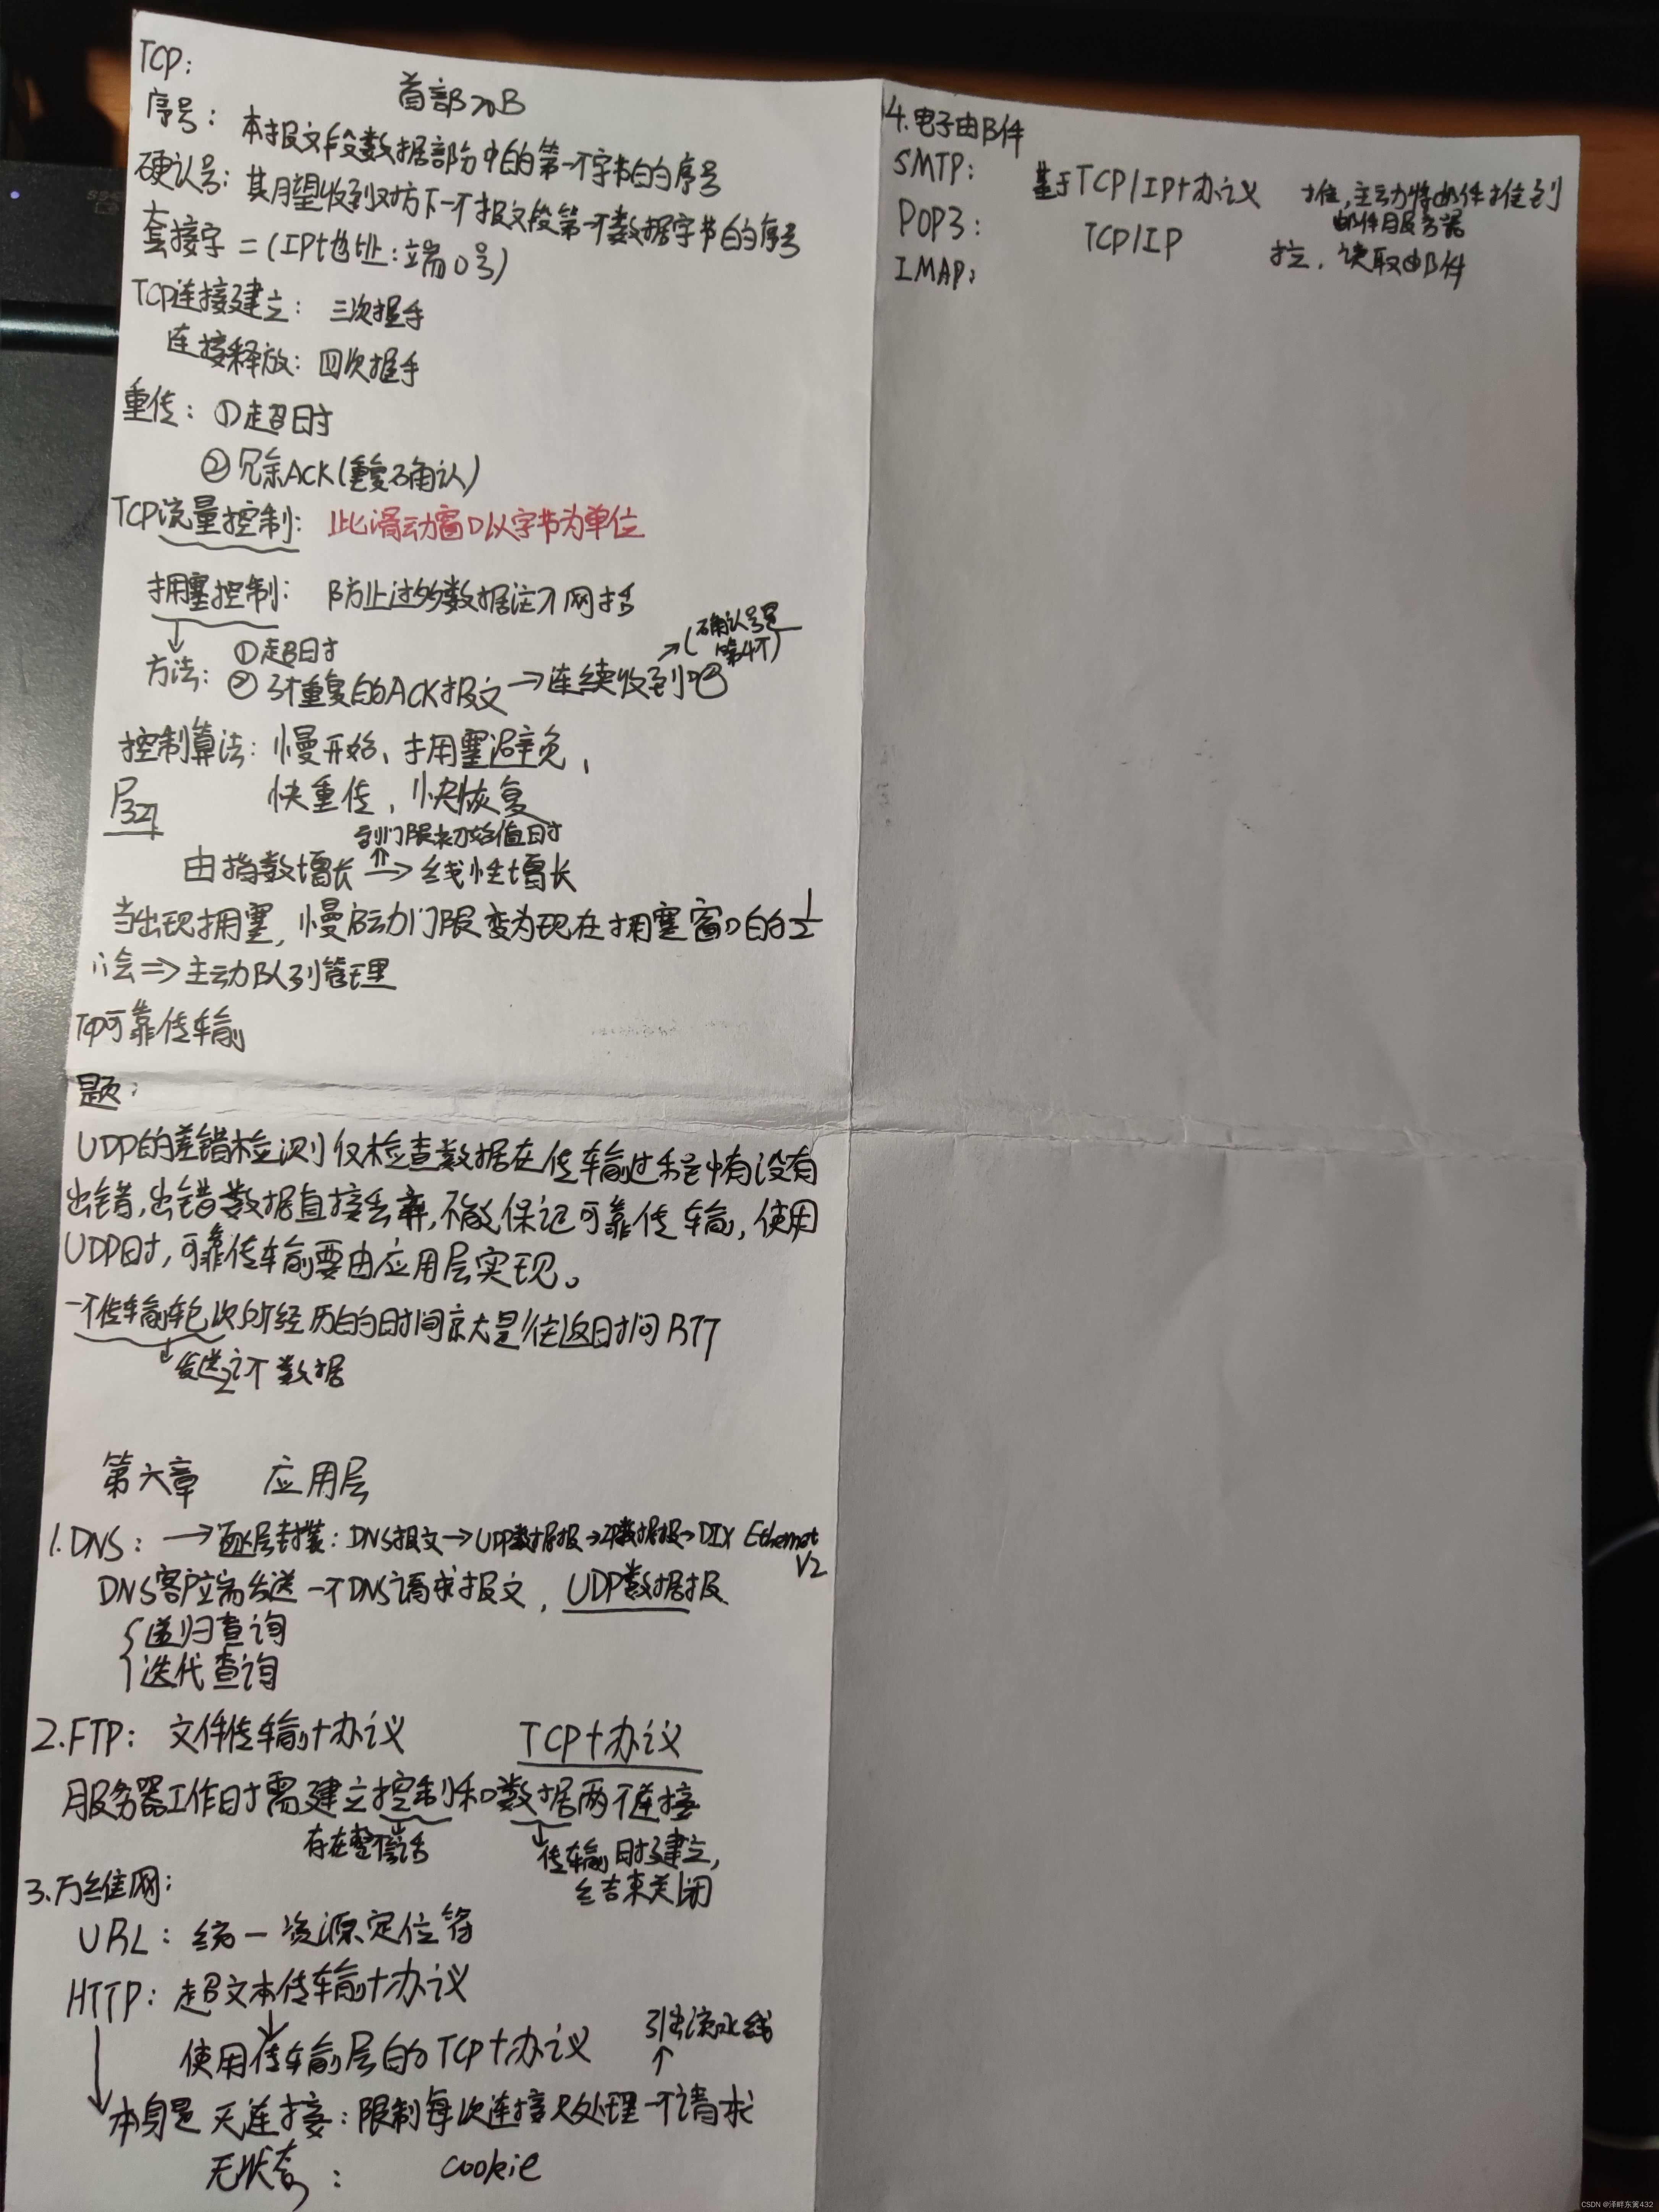 TCP:
首部20B
序号: 本报文段数据部分中的第一个字节的序号
确认号: 其期望收到对方下一个报文段第一个数据字节的序号
套接字=(IP地址:端口号)
TCP连接建立: 三次握手
连接释放: 四次握手
重传: ①超时
②冗余ACK(重复确认)
TCP流量控制: 此滑动窗口以字节为单位
拥塞控制: 防止过多数据注入网络
方法: ①超时
②3个重复的ACK报文→连续收到4个
(确认号是第4个)
控制算法: 慢开始、拥塞避免,
快重传, 快恢复
P321
到门限初始值时
由指数增长→线性增长
当出现拥塞, 慢启动门限变为现在拥塞窗口的1/2
⇒主动队列管理
TCP可靠传输
题:
UDP的差错检测仅检查数据在传输过程中有没有
出错,出错数据直接丢弃,不能保证可靠传输, 使用
UDP时,可靠传输要由应用层实现。
一个传输轮次所经历的时间就是往返时间RTT
发送 数据
第六章 应用层
1.DNS: →逐层封装: DNS报文→UDP数据报→IP数据报→DIX Ethernet V2
DNS客户端发送一个DNS请求报文, UDP数据报
{递归查询
迭代查询
2.FTP: 文件传输协议 TCP协议
服务器工作时需建立控制和数据两个连接
存在整个会话
传输时建立,
结束关闭
3.万维网:
URL: 统一资源定位符
HTTP: 超文本传输协议
使用传输层的TCP协议
引出流水线
本身是无连接: 限制每次连接只处理一个请求
无状态: cookie
4.电子邮件
SMTP: 基于TCP/IP协议 推,主动将邮件推到
邮件服务器
POP3: TCP/IP 拉, 读取邮件
IMAP:
CSDN @泽畔东篱432